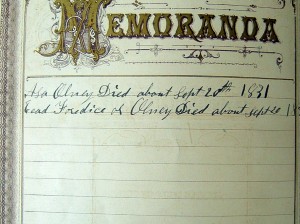 MEMORANDA
Asa Olney Died about Sept 20th 1831
Olney Died about Sept 20